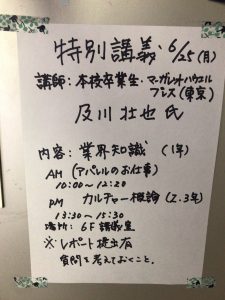 特別講義 6/25(月)
講師:本校卒業生・マーガレットハウエル
プレス(東京)
及川壮也氏
内容:業界知識(1年)
AM(アパレルのお仕事)
10:00〜12:20
PM カルチャー概論(2.3年)
13:30〜15:30
場所:6F講義室
※レポート提出有
質問を考えておくこと。